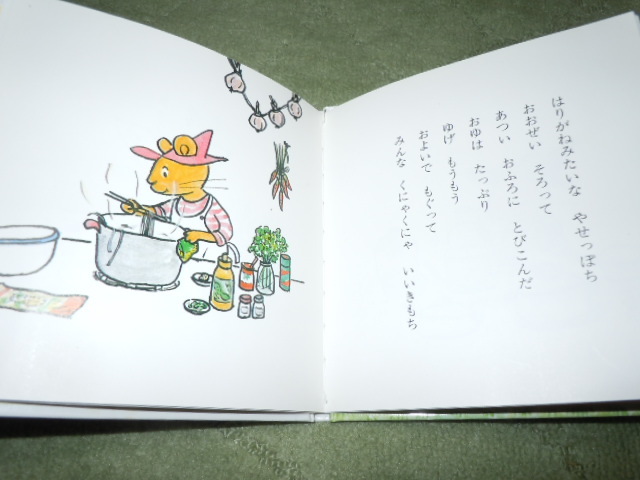 はりがねみたいな　やせっぽち
おおぜい　そろって
あつい　おふろに　とびこんだ
おゆは　たっぷり
ゆげ　もうもう
およいで　もぐって
みんな　くにゃくにゃ　いいきもち